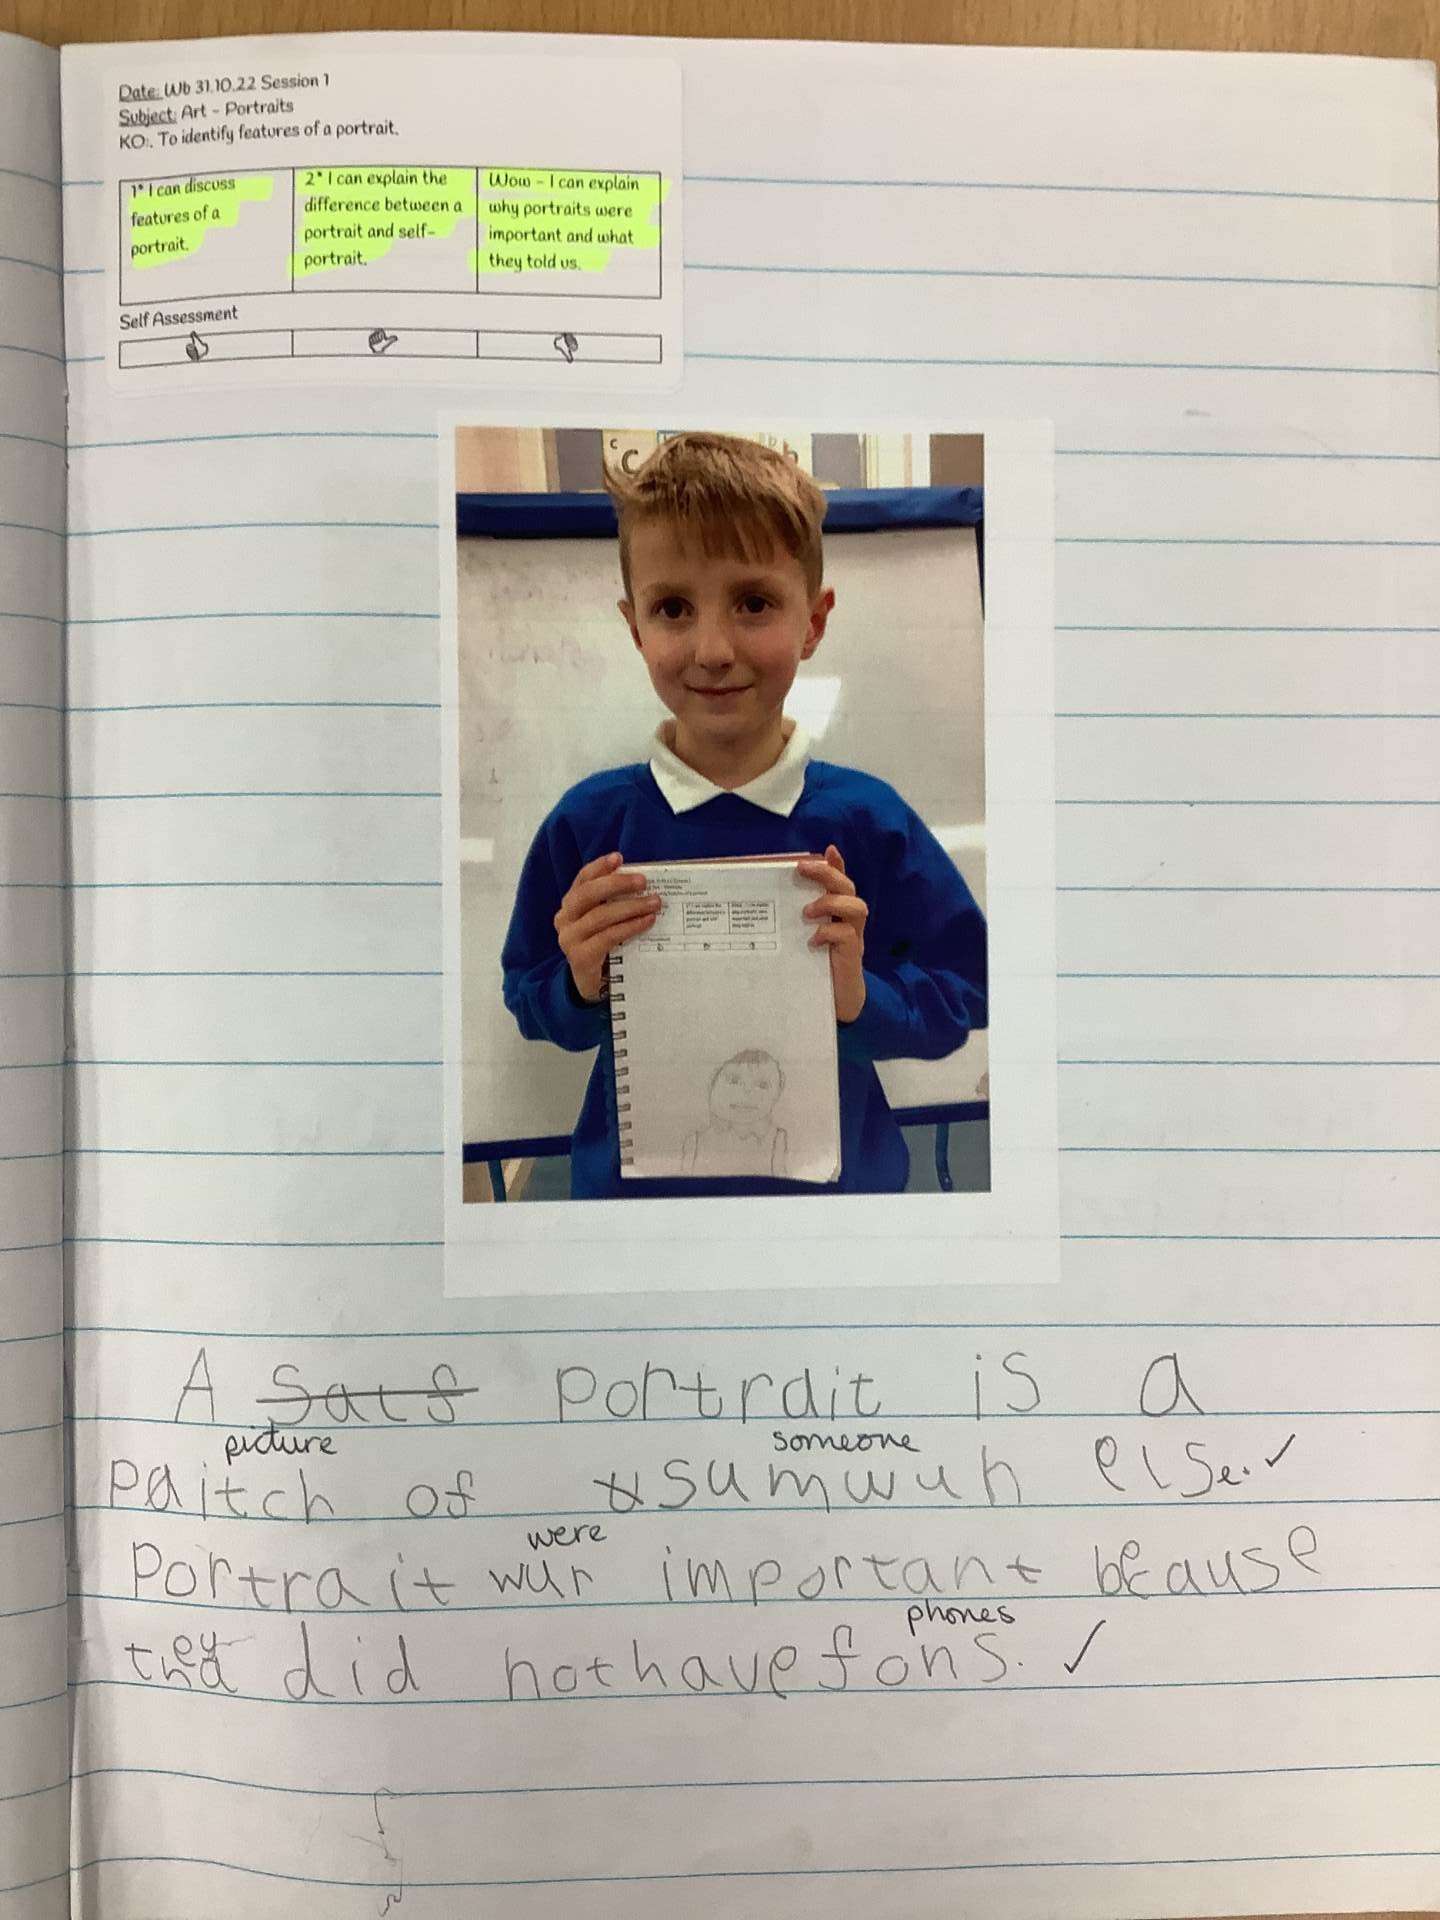 Date: Wb 31.10.22 Session 1
Subject: Art - Portraits
KO:. To identify features of a portrait.
1* I can discuss
features of a
portrait.
2* I can explain the
difference between a
portrait and self-
portrait.
Wow - I can explain
why portraits were
important and what
they told us.
Self Assessment
c
C
b
b
A Satf portrait is a
picture someone
paitch of sumwun else. ✓
were
Portrait wur important because
phones
they did not have fons. ✓